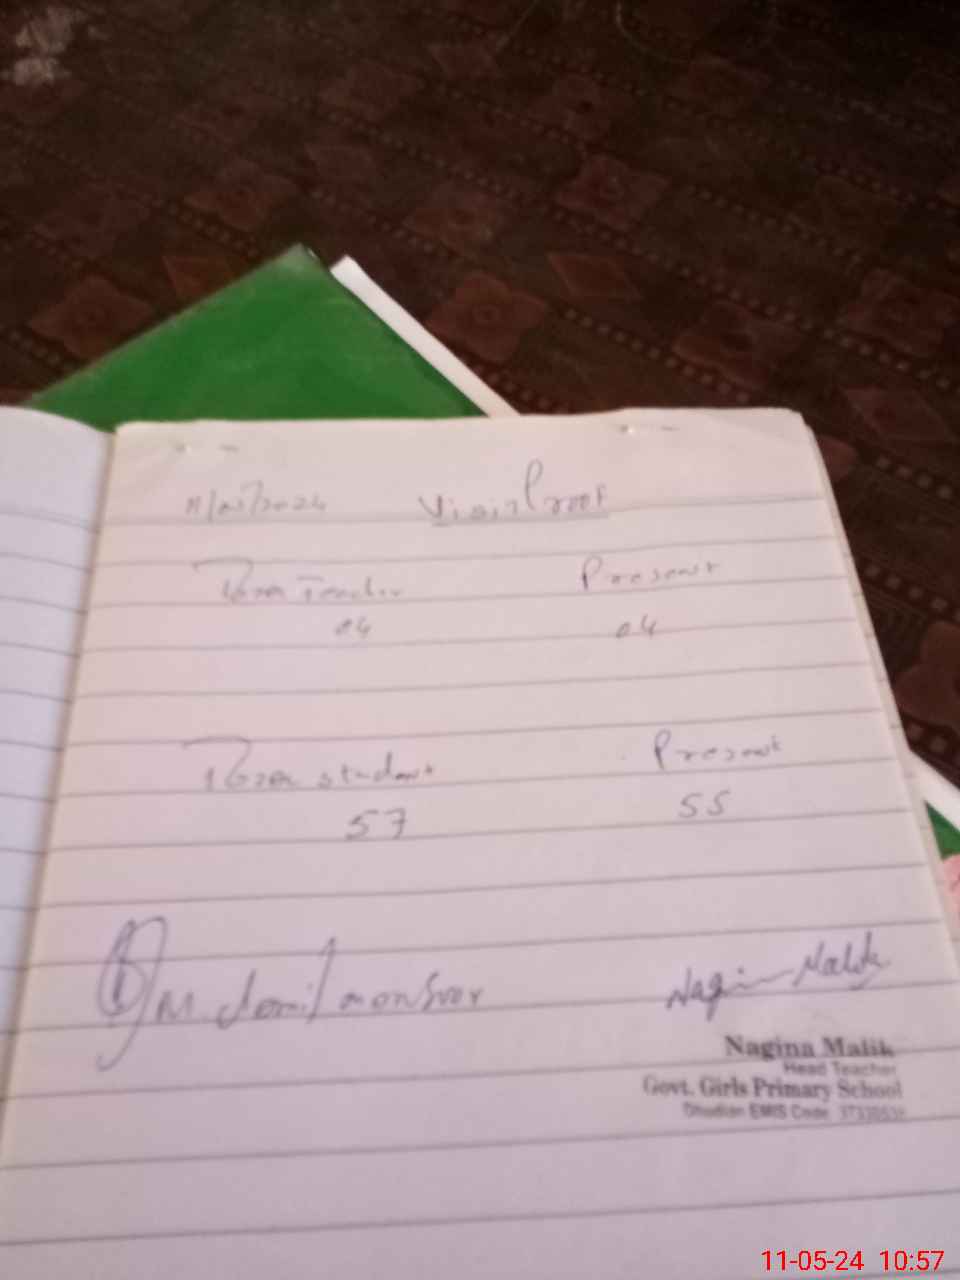 11/05/2024 Visit Proof
Teacher Present
04 04
student Present
57 55
M
Nagina Malik
Nagina Malik
Head Teacher
Govt. Girls Primary School
EMIS Code
11-05-24 10:57